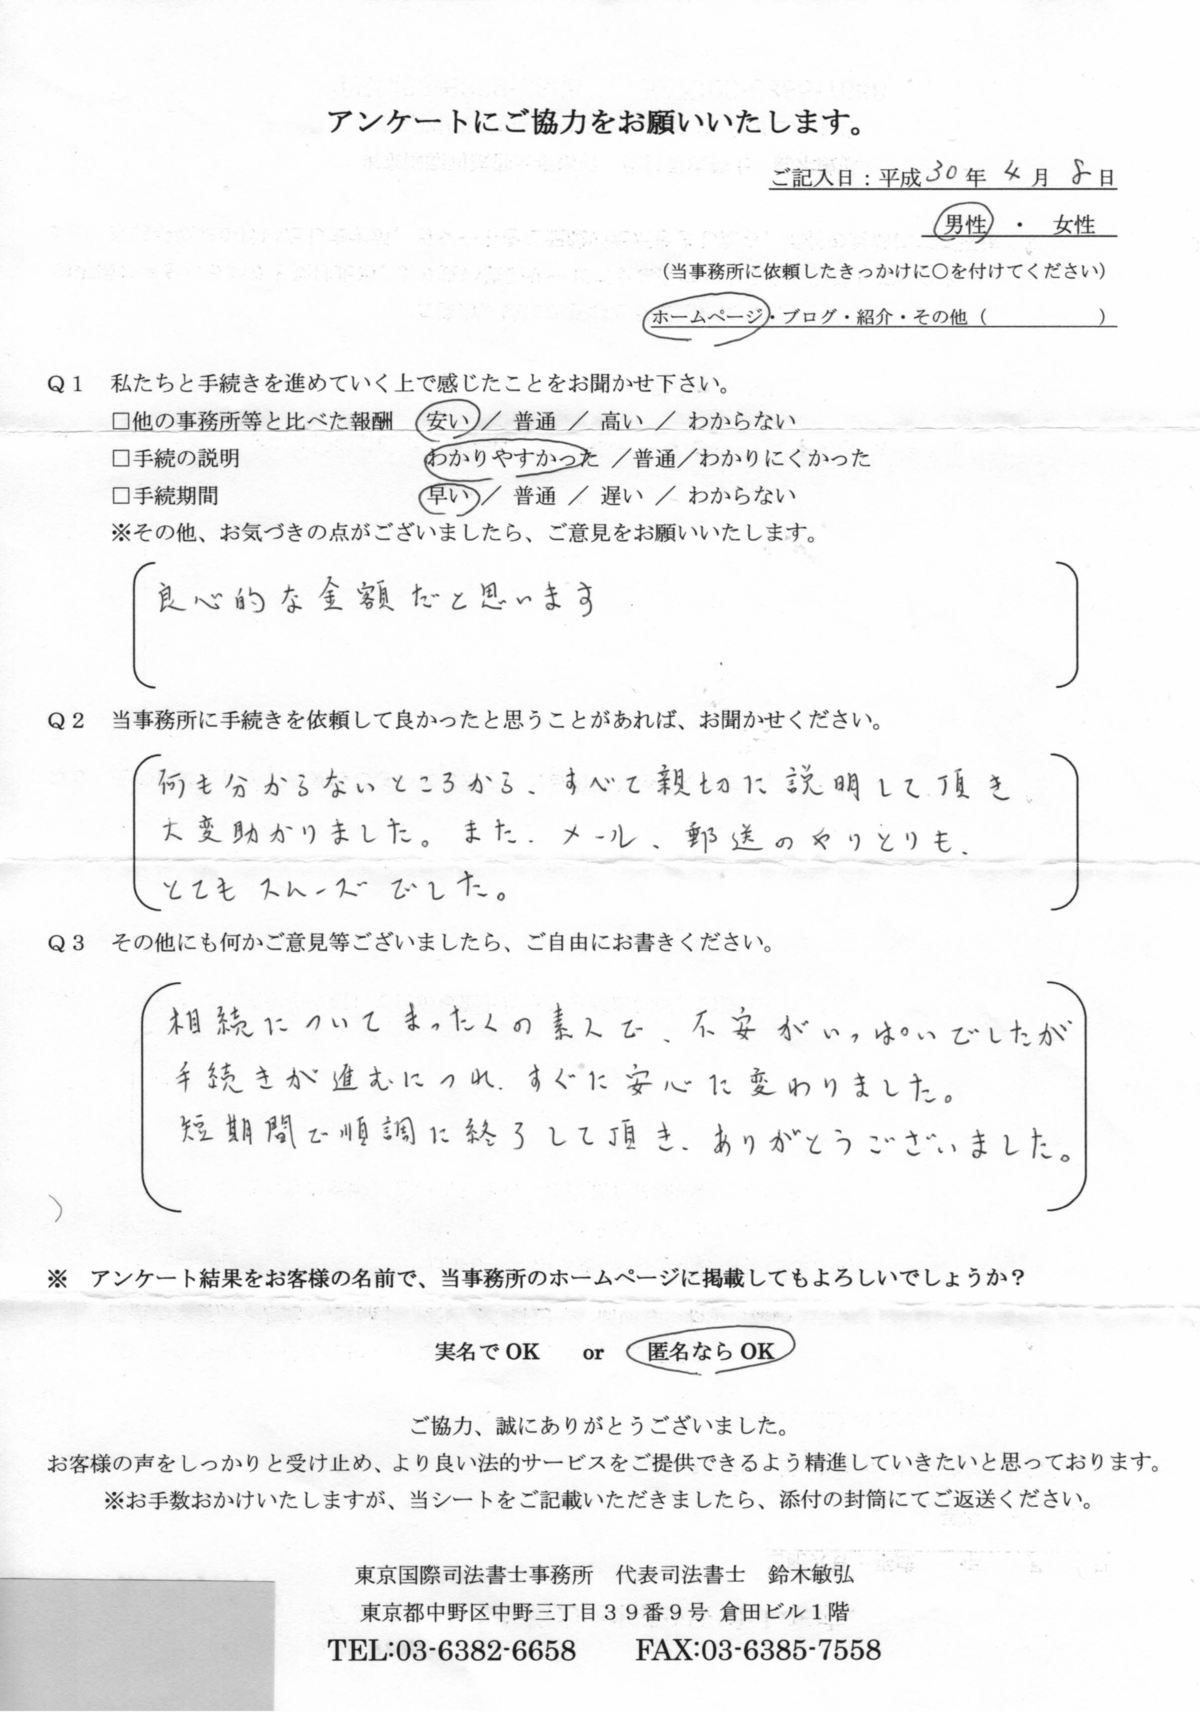 アンケートにご協力をお願いいたします。
ご記入日：平成 30 年 4 月 8 日
男性 ・ 女性
（当事務所に依頼したきっかけに○を付けてください）
ホームページ・ブログ・紹介・その他（　　　　　）
Q１　私たちと手続きを進めていく上で感じたことをお聞かせ下さい。
□他の事務所等と比べた報酬　安い ／ 普通 ／ 高い ／ わからない
□手続の説明　わかりやすかった ／普通／わかりにくかった
□手続期間　早い ／ 普通 ／ 遅い ／ わからない
※その他、お気づきの点がございましたら、ご意見をお願いいたします。
良心的な金額だと思います
Q２　当事務所に手続きを依頼して良かったと思うことがあれば、お聞かせください。
何も分からないところから、すべて親切に説明して頂き
大変助かりました。また、メール、郵送のやりとりも、
とてもスムーズでした。
Q３　その他にも何かご意見等ございましたら、ご自由にお書きください。
相続についてまったくの素人で、不安がいっぱいでしたが
手続きが進むにつれ、すぐに安心に変わりました。
短期間で順調に終了して頂き、ありがとうございました。
※　アンケート結果をお客様の名前で、当事務所のホームページに掲載してもよろしいでしょうか？
実名でOK　or　匿名ならOK
ご協力、誠にありがとうございました。
お客様の声をしっかりと受け止め、より良い法的サービスをご提供できるよう精進していきたいと思っております。
※お手数おかけいたしますが、当シートをご記載いただきましたら、添付の封筒にてご返送ください。
東京国際司法書士事務所　代表司法書士　鈴木敏弘
東京都中野区中野三丁目３９番９号 倉田ビル１階
TEL:03-6382-6658　FAX:03-6385-7558